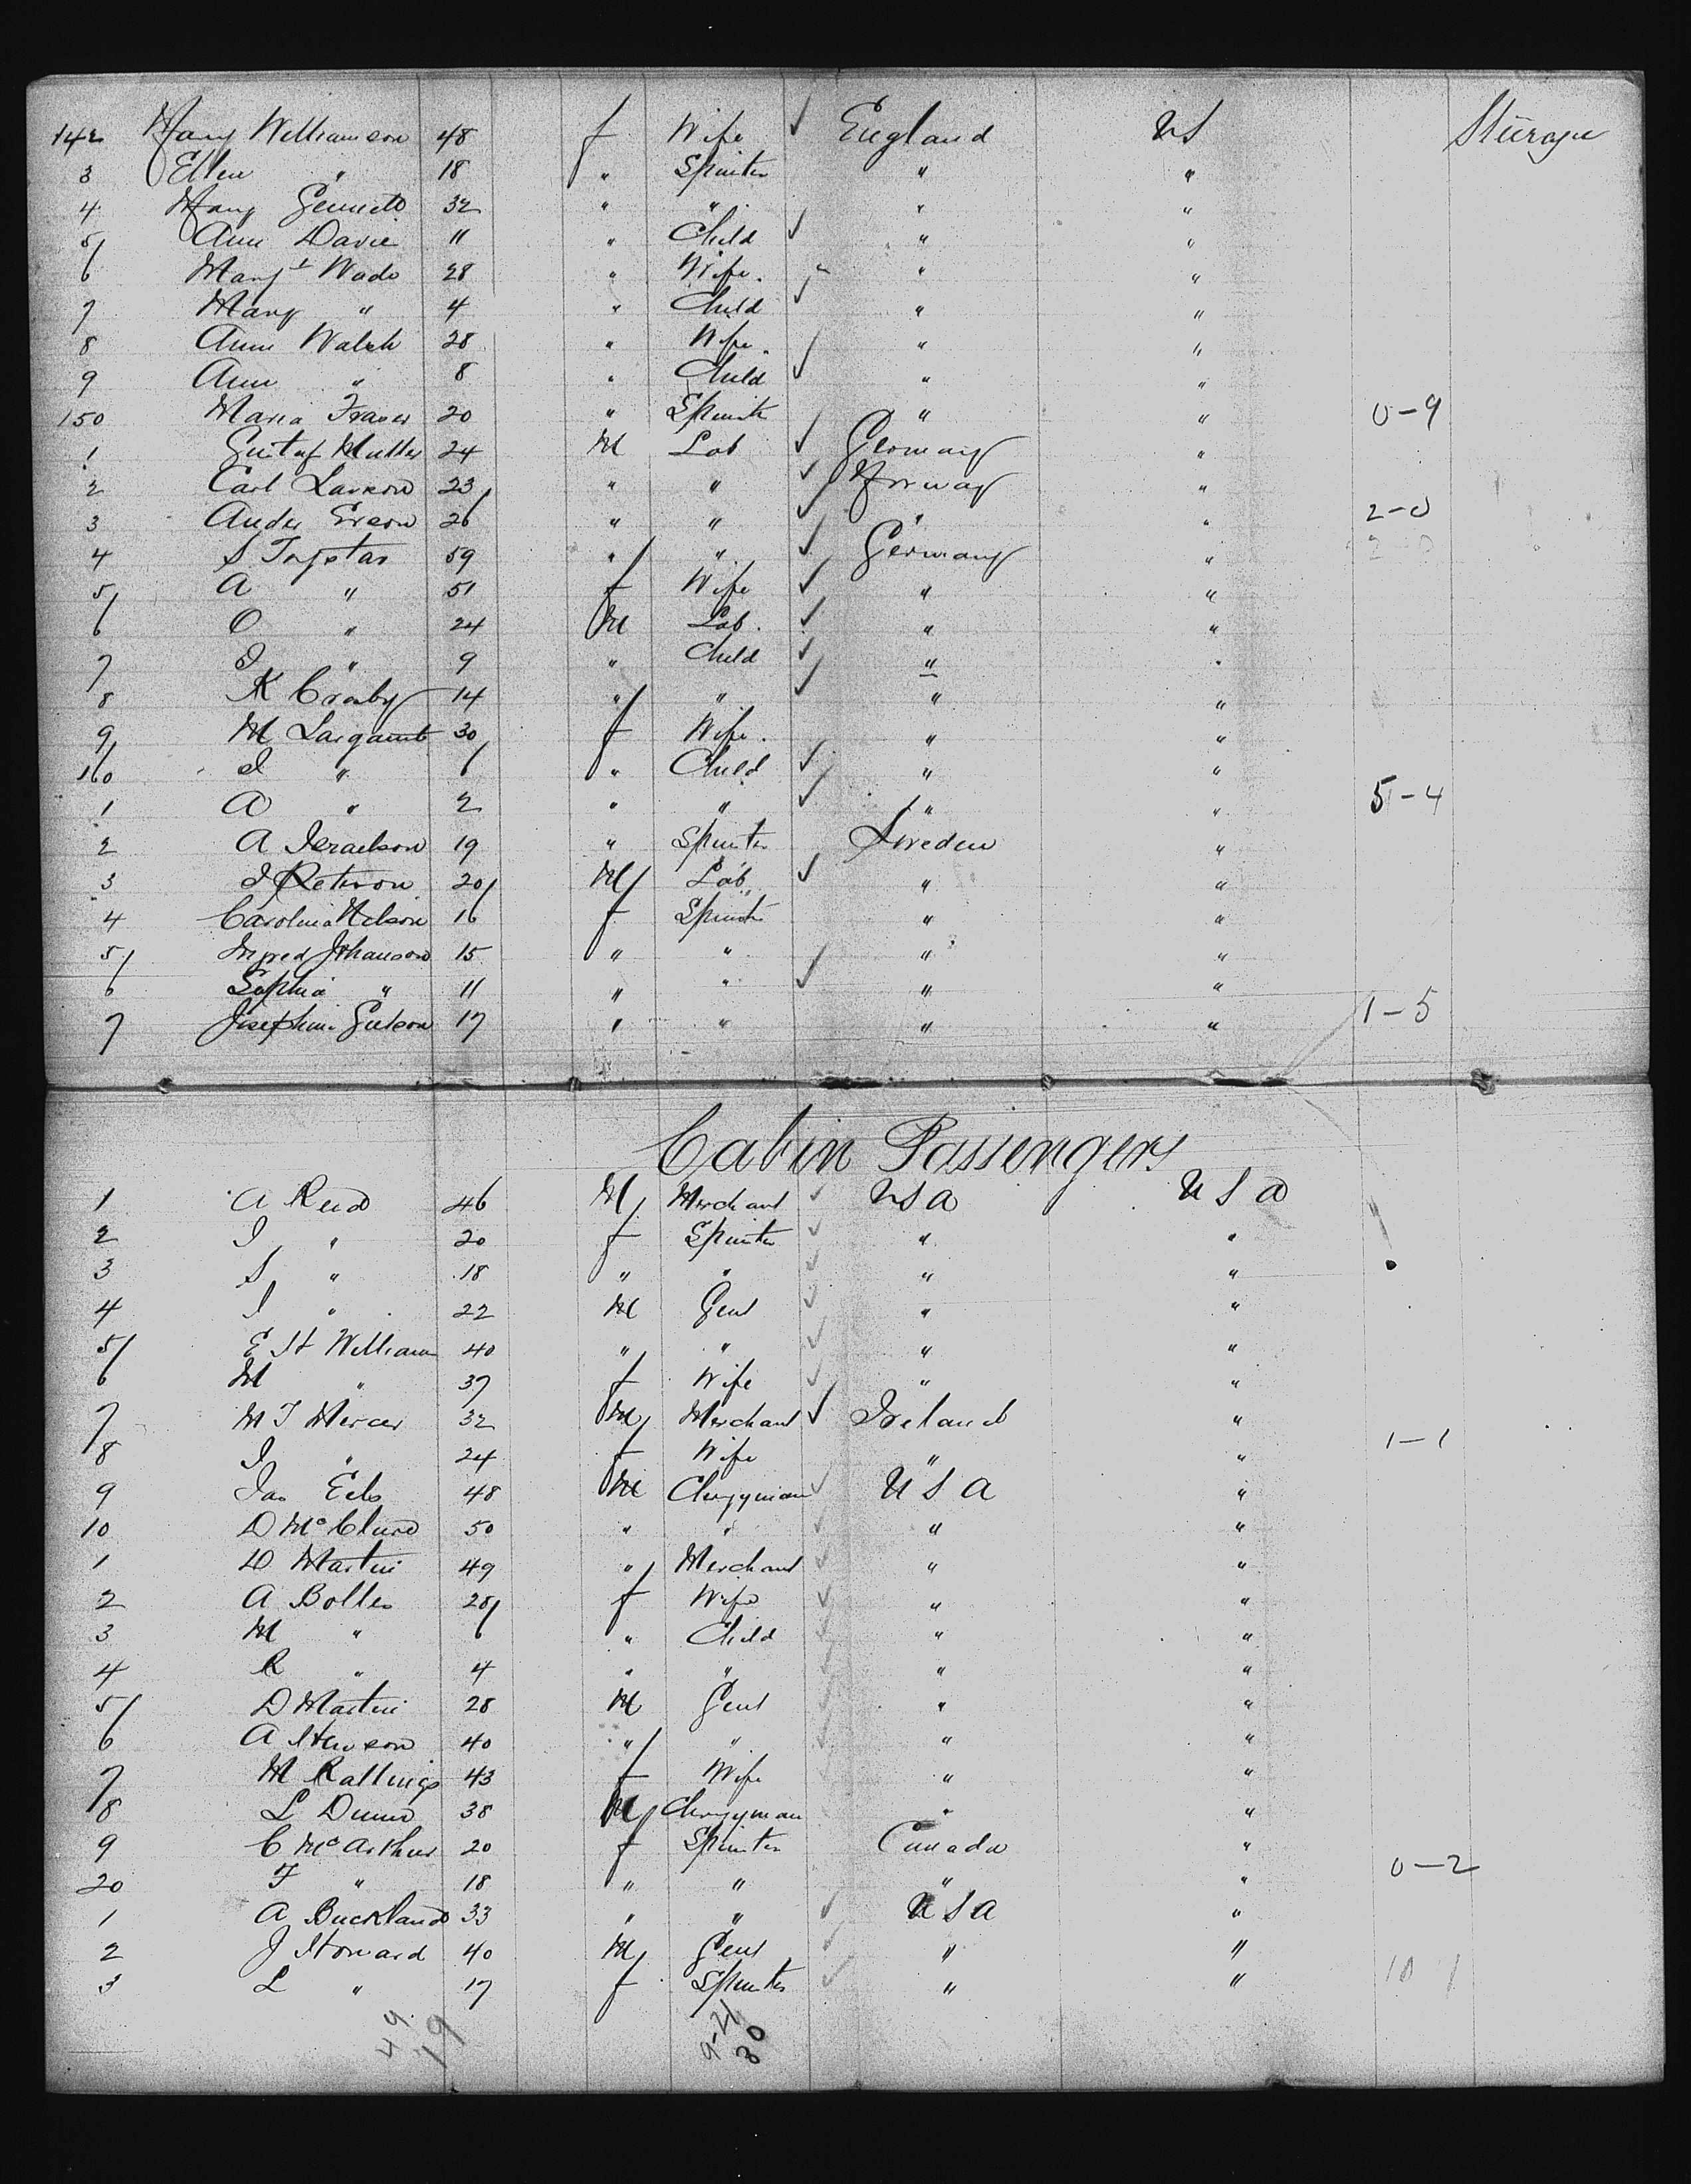 142 Mary Williamson 48 f Wife ✓ England US Steerage
3 Ellen " 18 " Spinster " "
4 Mary 32 " " " "
5 Ann Davie 11 " Child ✓ " "
6 Margt Wade 28 " Wife. " "
7 Mary " 4 " Child ✓ " "
8 Ann Walsh 28 " Wife. " "
9 Ann " 8 " Child ✓ " "
150 Maria Fraser 20 " Spinster " " 0-9
1 Gustaf Muller 24 M Lab ✓ Germany "
2 Carl Larson 23 " " ✓ Norway "
3 Andrs 26 " " ✓ " " 2-0
4 S 59 " " ✓ Germany " 2-0
5 A " 51 f Wife ✓ " "
6 O " 24 M Lab. ✓ " "
7 I " 9 " Child ✓ " "
8 K Crosby 14 " " ✓ " "
9 M 30 f Wife. " "
160 I " 6 " Child ✓ " "
1 A " 2 " " ✓ " " 5-4
2 A Israelson 19 " Spinster Sweden "
3 I Peterson 20 M Lab ✓ " "
4 Carolina Nelson 16 f Spinster " "
5 Ingred Johanson 15 " " " "
6 Sophia " 11 " " ✓ " "
7 Josephine 17 " " " " 1-5
Cabin Passengers
1 A Reid 46 M Merchant ✓ USA USA
2 I " 20 f Spinster ✓ " "
3 S " 18 " " ✓ " "
4 I " 22 M Gent ✓ " "
5 E H William 40 " " ✓ " "
6 M " 37 f Wife ✓ " "
7 M J Mercer 32 M Merchant ✓ Ireland "
8 I " 24 f Wife " " 1-1
9 Jas Eels 48 M Clergyman ✓ USA "
10 D McClure 50 " " ✓ " "
1 D Martin 49 " Merchant ✓ " "
2 A Bolles 28 f Wife ✓ " "
3 M " 6 " Child ✓ " "
4 R " 4 " " ✓ " "
5 D Martin 28 M Gent ✓ " "
6 A Hewson 40 " " ✓ " "
7 M Rallings 43 f Wife " "
8 L Dunn 38 M Clergyman " "
9 C McArthur 20 f Spinster Canada "
20 F " 18 " " " " 0-2
1 A Buckland 33 " " ✓ USA "
2 J Howard 40 M Gent ✓ " "
3 L " 17 f Spinster ✓ " " 10 1
49 19 9-21 30